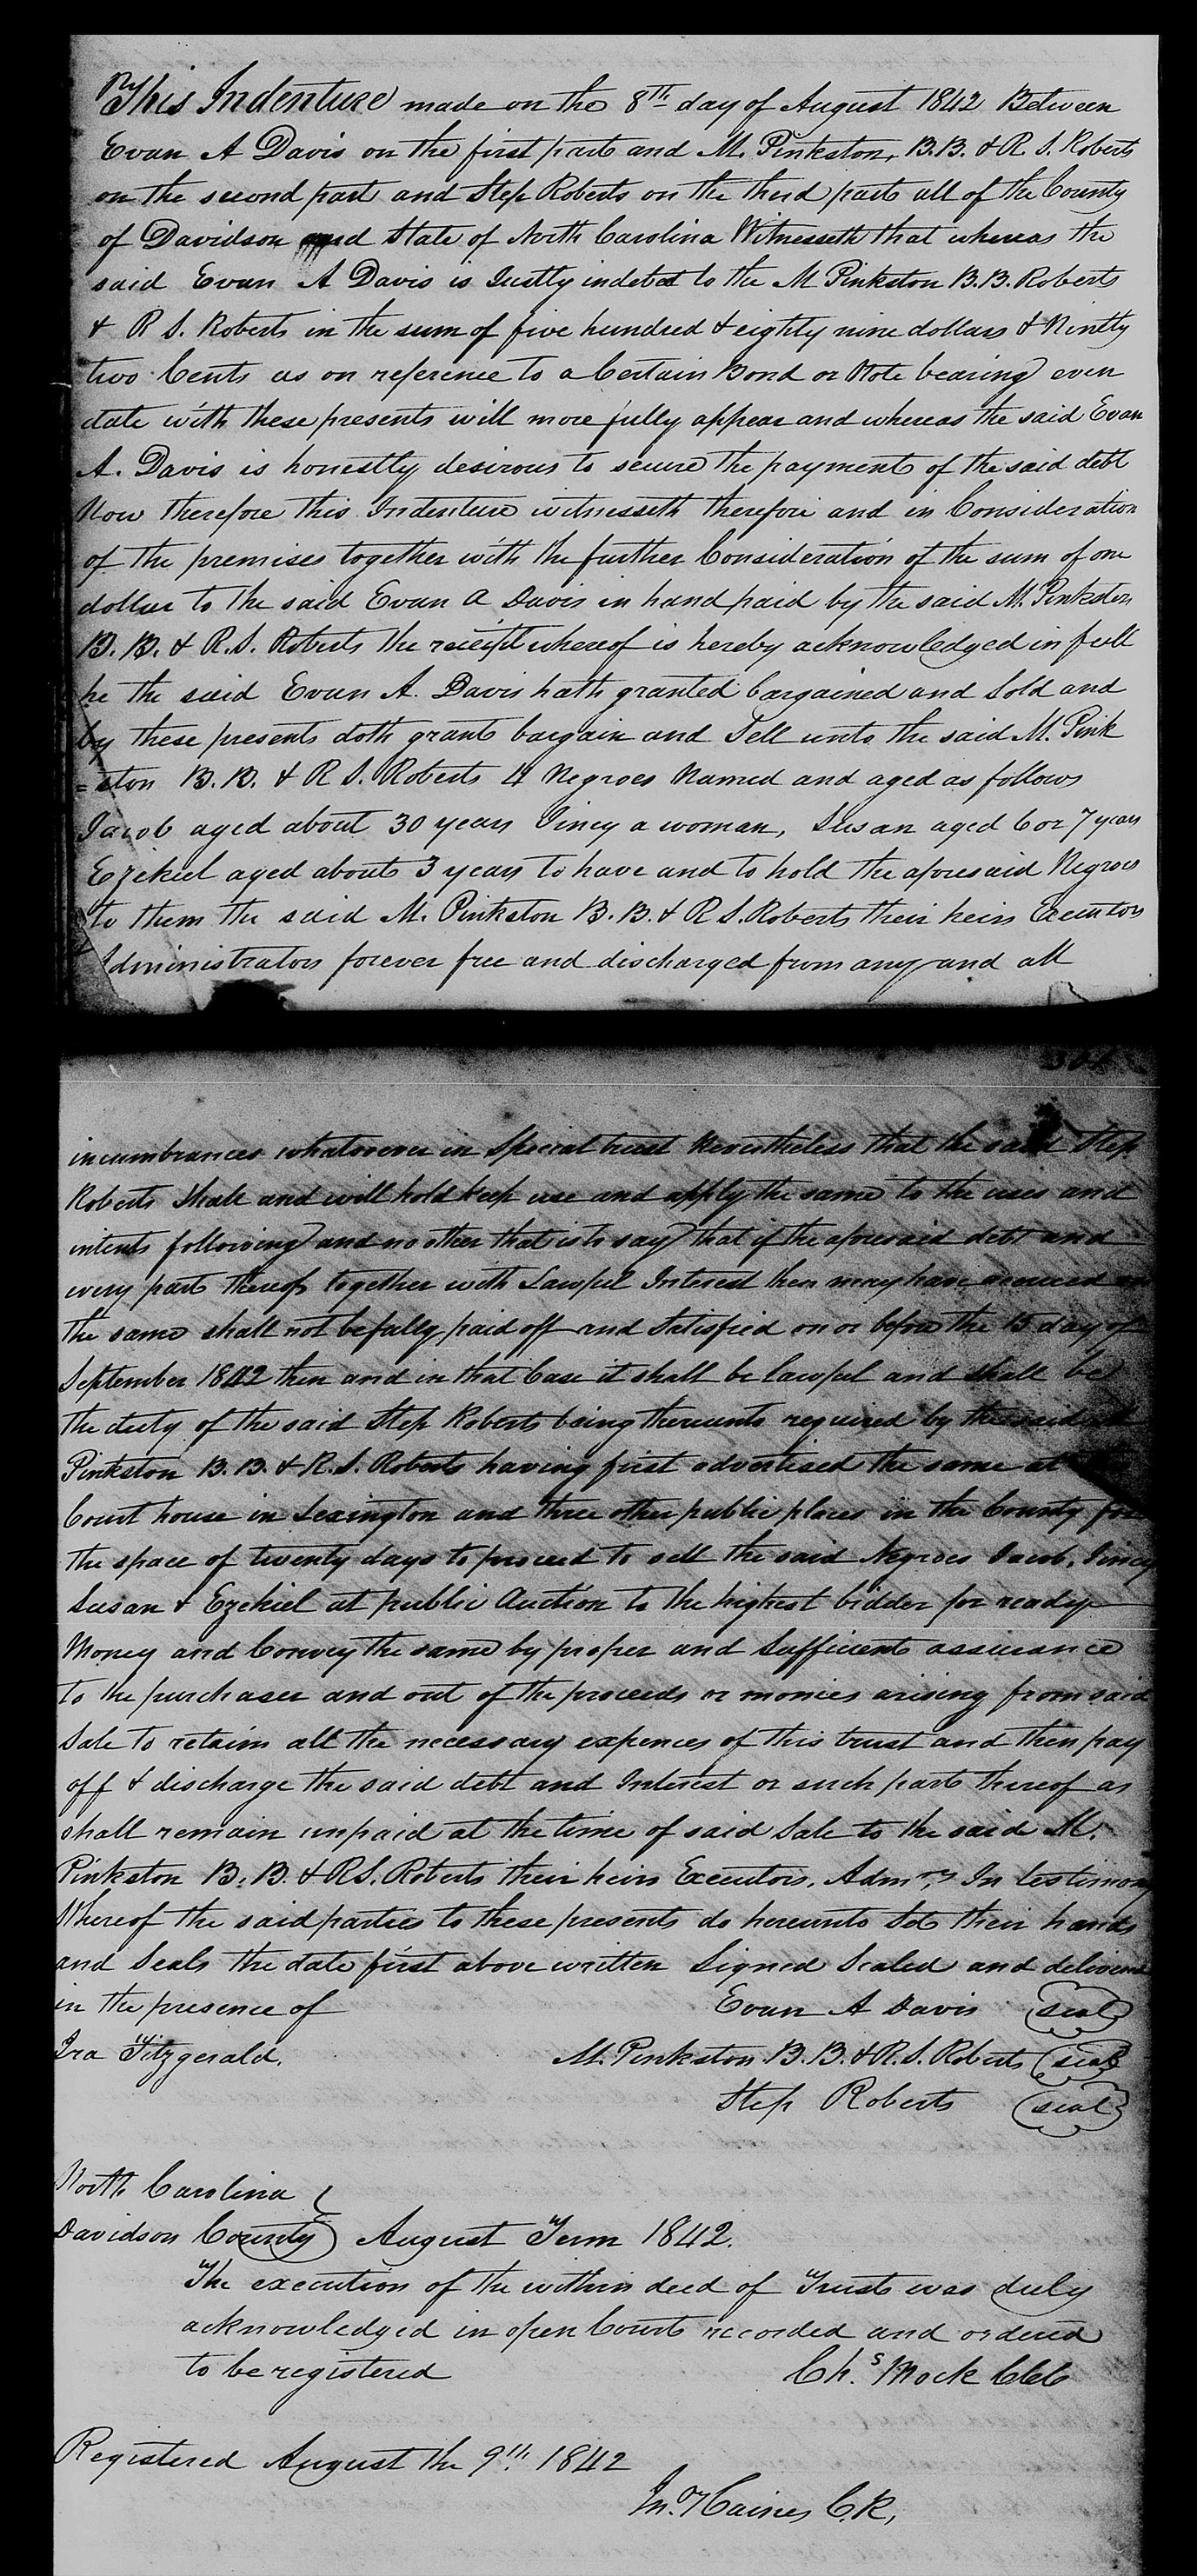 This Indenture made on the 8th day of August 1842 Between
Evan A Davis on the first part and M. Pinkston, B.B. & R. S. Roberts
on the second part and Step Roberts on the third part all of the County
of Davidson and State of North Carolina Witnesseth that whereas the
said Evan A Davis is Justly indebted to the M Pinkston B.B. Roberts
& R S. Roberts in the sum of five hundred & eighty nine dollars & Ninetty
two Cents as on reference to a Certain Bond or Note bearing even
date with these presents will more fully appear and whereas the said Evan
A. Davis is honestly desirous to secure the payment of the said debt
Now therefore this Indenture witnesseth therefore and in Consideration
of the premises together with the further Consideration of the sum of one
dollar to the said Evan A Davis in hand paid by the said M. Pinkston
B. B. & R. S. Roberts the receipt whereof is hereby acknowledged in full
he the said Evan A. Davis hath granted bargained and Sold and
by these presents doth grant bargain and Sell unto the said M. Pink
=ston B. B. & R S. Roberts 4 Negroes Named and aged as follows
Jacob aged about 30 years Viney a woman, Susan aged 6 or 7 years
Ezekiel aged about 3 years to have and to hold the aforesaid Negroes
to them the said M. Pinkston B. B. & R S. Roberts their heirs Executors
Administrators forever free and discharged from any and all
incumbrances whatsoever in Special trust Nevertheless that the said Step
Roberts Shall and will hold keep use and apply the same to the uses and
intents following and no other that is to say that if the aforesaid debt and
every part thereof together with Lawful Interest then may have accrued
the same shall not be fully paid off and Satisfied on or before the 15 day of
September 1842 then and in that Case it shall be lawful and shall be
the duty of the said Step Roberts being thereunto required by the said
Pinkston B. B. & R. S. Roberts having first advertised the same at
Court house in Lexington and three other public places in the County for
the space of twenty days to proceed to sell the said Negroes Jacob, Viney
Susan & Ezekiel at public Auction to the highest bidder for ready
Money and Convey the same by proper and Sufficient assurance
to the purchaser and out of the proceeds or monies arising from said
Sale to retain all the necessary expences of this trust and then pay
off & discharge the said debt and Interest or such part thereof as
shall remain unpaid at the time of said Sale to the said M.
Pinkston B. B. & R S. Roberts their heirs Executors, Admrs In testimony
Whereof the said parties to these presents do hereunto Set their hands
and Seals the date first above written Signed Sealed and delivered
in the presence of Evan A Davis (seal)
Ira Fitzgerald. M. Pinkston B. B. & R. S. Roberts (seal)
Step Roberts (seal)
North Carolina
Davidson County August Term 1842.
The execution of the within deed of Trust was duly
acknowledged in open Court recorded and ordered
to be registered Chs Mock CCC
Registered August the 9th 1842
Jno Haines C.R,